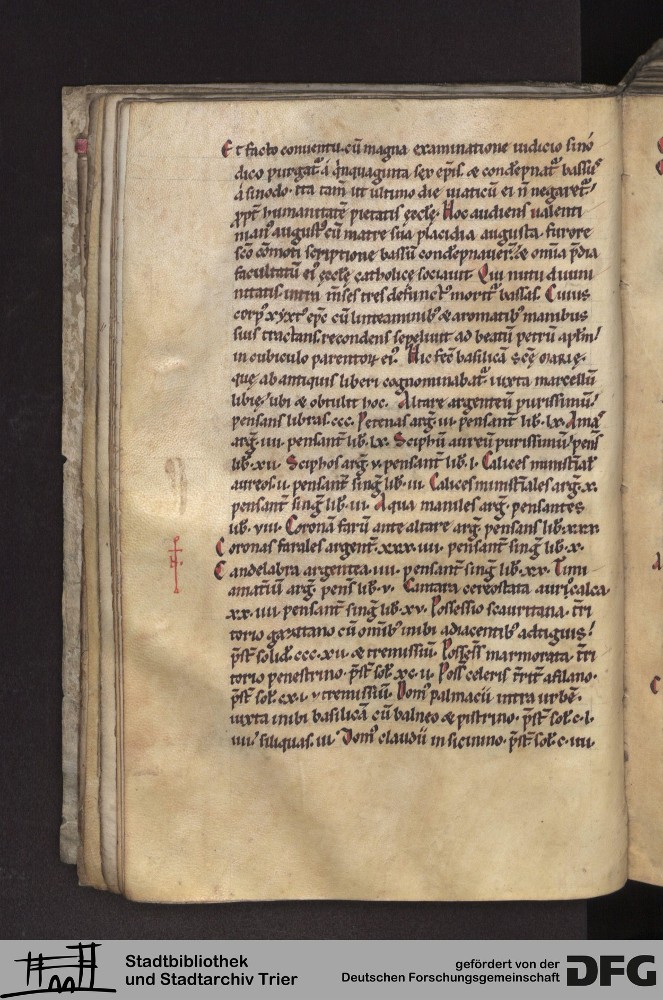 Et facto conuentu. cū magna examinatione iudicio sino
dico purgat᷑ a q̓nquaginta sex ep̄is. & condēpnat᷑ bassus
a sinodo. ita tam̄ ut ultimo die uiaticū ei n̄ negaret᷑.
ꝓpt̄ humanitatē pietatis ęcclę. Hoc audiens ualenti
nian᷒ august᷒ cū matre sua placidia augusta. furore
sc̄o cōmoti scriptione bassū condēpnauer̄. & om̄ia p̄dia
facultatū ei᷒ ęcclę catholicę sociauit. Qui nutu diuini
nitatis. intra m̄ses tres defunct᷒ mortu᷒ bassus. Cuius
corp᷒ xyxt᷒ epc̄ cū linteaminib᷒ & aromatib᷒ manibus
suis tractans. recondens sepeliuit ad beatū petrū aplm̄
in cubiculo parentoꝝ ei᷒. Hic fec̄ basilicā sc̄ę marię.
quę ab antiquis liberi cognominabat᷑. iuxta marcellū
libię. ubi & obtulit hoc. Altare argenteū purissimū.
pensans libras. ccc. Petenas arg̃. iii. pensant̄ lib̄. lx. Ama᷒
arg̃. iiii. pensant̄ lib̄. lx. Sciphū aureū purissimū. pens̄
lib̄. xii. Sciphos arg̃. v. pensant̄ lib̄. l. Calices minist̄ial̄
aureos. ii. pensant̄ sing̃ lib̄. iii. Calices minist̄iales arg̃. x.
pensant̄ sing̃ lib̄. iii. Aqua maniles arg̃. pensantes
lib̄. viii. Coronā farū ante altare arg̃ pensans lib̄. xxx
Coronas farales argent̄. xxx. iiii. pensant̄ sing̃ lib̄. x.
Candelabra argentea. iiii. pensant̄ sing̃ lib̄. xx. Timi
amatiū arg̃. pens̄ lib̄. v. Cantara cereostata auricalca.
xx. iiii. pensant̄ sing̃ lib̄. xv. Possessio scauritana. t̄ri
torio gazattano cū om̄ib᷒ inibi adiacentib᷒ adtiguis.
p̄st̄ solid̄. ccc. xii. & tremissiū. Possess̄ marmorata. t̄ri
torio penestrino. p̄st̄ sol̄. xc. ii. Poss̄ celeris t̄rit̄ afilano.
p̄st̄ sol̄. cx. i. & tremissiū. Dom᷒ palmacii intra urbē.
iuxta inibi basilicā cū balneo & pistrino. p̄st̄ sol̄. c. l.
iiii. siliquas. iii. Dom᷒ claudii in sicinino. p̄st̄ sol̄. c. iiii.
Stadtbibliothek
und Stadtarchiv Trier
gefördert von der
Deutschen Forschungsgemeinschaft
DFG